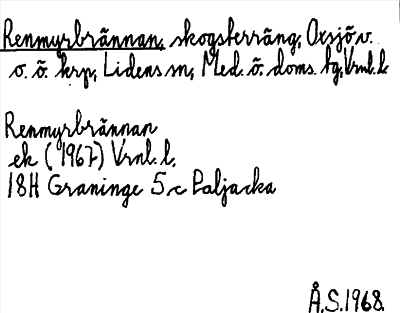 Renmyrbrännan, skogsterräng, Oxsjö v.
o. ö. krp, Lidens sn, Med. ö. doms. tg, Vrnl. l.
Renmyrbrännan
ek (1967) Vrnl. l.
18H Graninge 5 c Paljacka
Å.S. 1968.